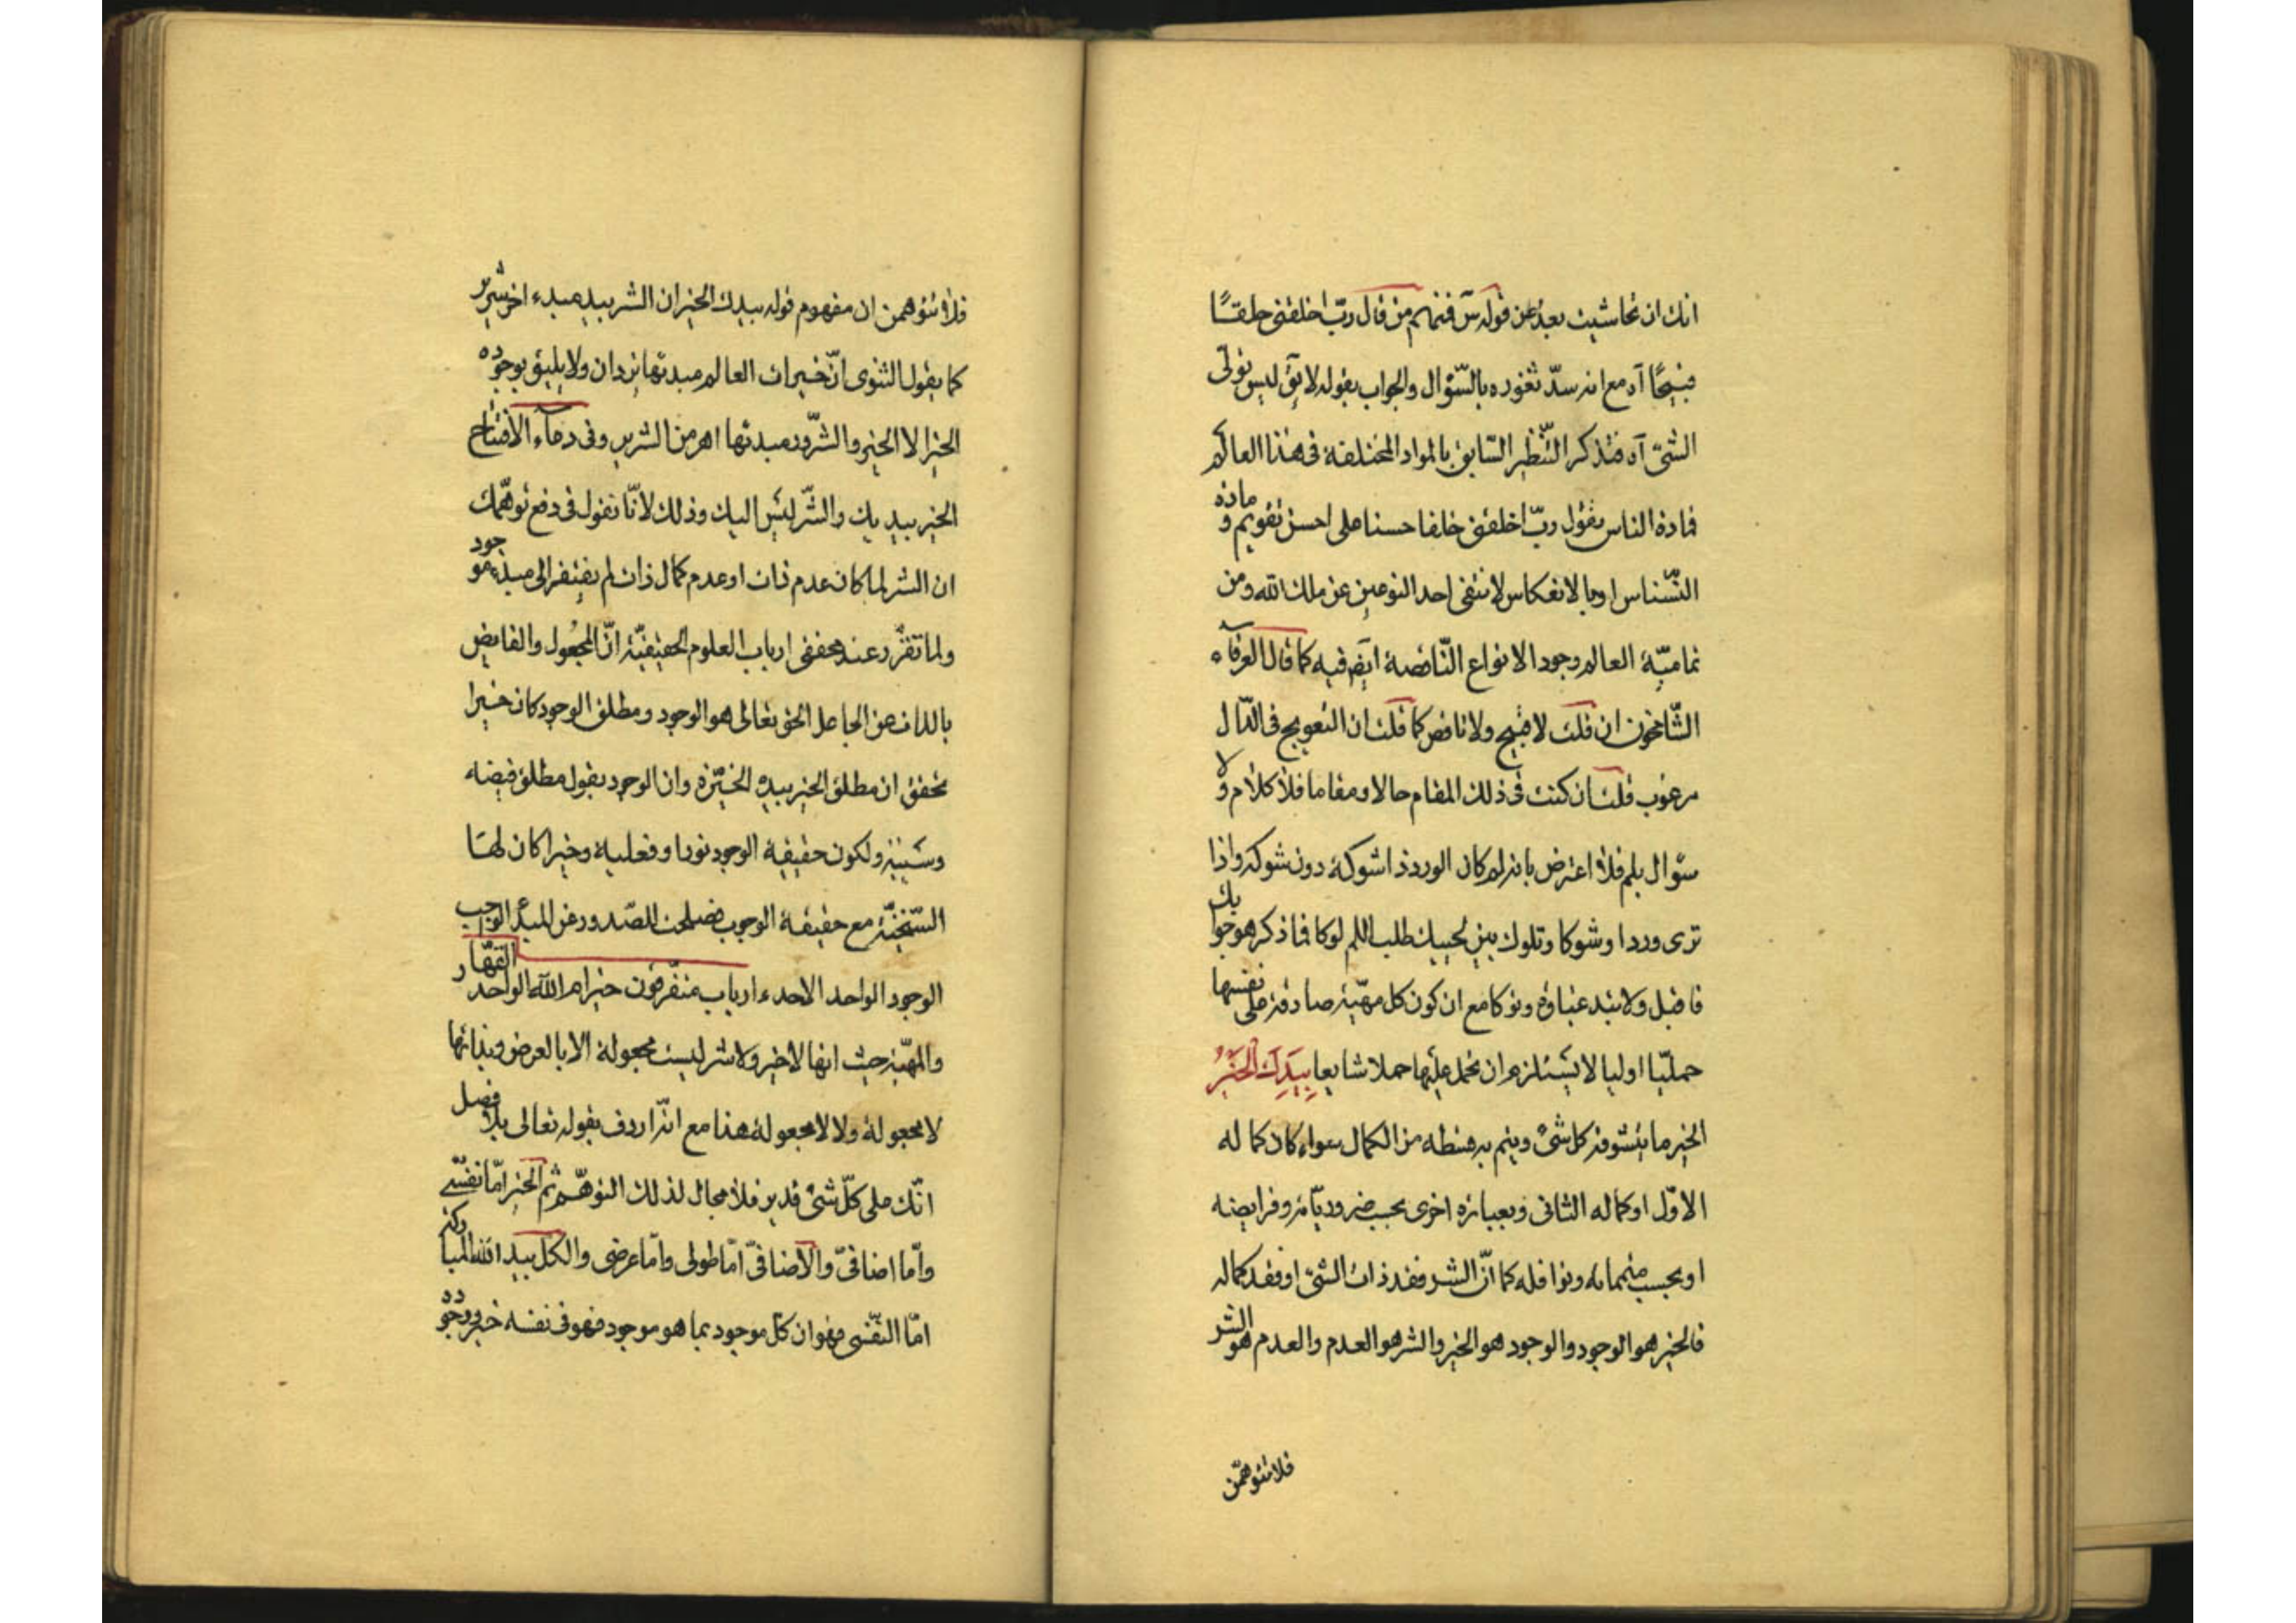 انك ان تحاشيت بعد عن قوله س فنهم من قال رب اخلقنى خلقًا
قبيحًا آه مع انه سدّ ثغوره بالسّؤال والجواب بقوله لا يق ليس تولّى
الشئ آه فتذكر النّظر السّابق بالمواد المختلفة فى هذا العالم
فمادة الناس يقول ربّ اخلقنى خلقا حسنا على احسن تقويم و مادة
النّسناس او بالانعكاس لا تنتفى احد النوعين عن ملك الله ومن
تماميّة العالم وجود الانواع النّاقصة ايض فيه كما قال العرفاء
الشّامخون ان قلت لا قبيح ولا ناقص كما قلت ان التعويج فى الدّال
مرغوب قلت ان كنت فى ذلك المقام حالا ومقاما فلا كلام ولا
سؤال بلم فلا اعترض بانه لم كان الورد ذا شوكة دون شوكه واذا
ترى وردا وشوكا وتلوك بين لحييك طلب اللم لوكا فما ذكر هو جوابك
فاقبل ولا تبد غباوة ونوكا مع ان كون كل مهيّة صادقة على نفسها
حمليّا اوليا لا يستلزم ان تحمل عليها حملا شايعا بِيَدِكَ الْخَيْرُ
الخير ما يتشوقه كل شئ ويتم به قسطه من الكمال سواء كان كماله
الاوّل او كماله الثانى وبعبارة اخرى بحسب ضروديّاته وفرايضه
او بحسب متمماته ونوافله كما انّ الشر فقد ذات الشئ او فقد كماله
فالخير هو الوجود والوجود هو الخير والشر هو العدم والعدم هو الشر
فلا تتوهمّن
فلا تتوهمن ان مفهوم قوله بيدك الخير ان الشر بيد مبدء اخر شرير
كما يقول الثنوى انّ خيرات العالم مبدئها يزدان ولا يليق بوجوده
الخير الا الخير والشّرور مبدئها اهرمن الشرير وفى دعاء الافتتاح
الخير بيديك والشّر ليس اليك وذلك لانّا نقول فى دفع توهّمك
ان الشر لما كان عدم ذات او عدم كمال ذات لم يفتقر الى مبدء موجود
ولما تقرّر عند محققى ارباب العلوم الحقيقيّة انّ المجعول والفايض
بالذات من الجاعل الحق تعالى هو الوجود ومطلق الوجود كان خيرا
تحقق ان مطلق الخير بيده الخيّرة وان الوجود بقول مطلق فيضه
وسيبه ولكون حقيقة الوجود نورا وفعلية وخيرا كان لها
السّنخيّة مع حقيقة الوجوب فصلحت للصّدور عن المبدء الواجب
الوجود الواحد الاحد ءارباب متفّرقون خير ام الله الواحد القهّار
والمهيّة حيث انها لا خير ولا شر ليست مجعولة الا بالعرض وبذاتها
لا مجعولة ولا لا مجعولة هذا مع انّه اردف بقوله تعالى بلا فصل
انّك على كلّ شئ قدير فلا مجال لذلك التوهّم ثم الخير امّا نفسّى
وامّا اضافىّ والاضافىّ امّا طولى وامّا عرضى والكل بيد الله المباركة
امّا النّفسى فهو ان كل موجود بما هو موجود فهو فى نفسه خير ووجود